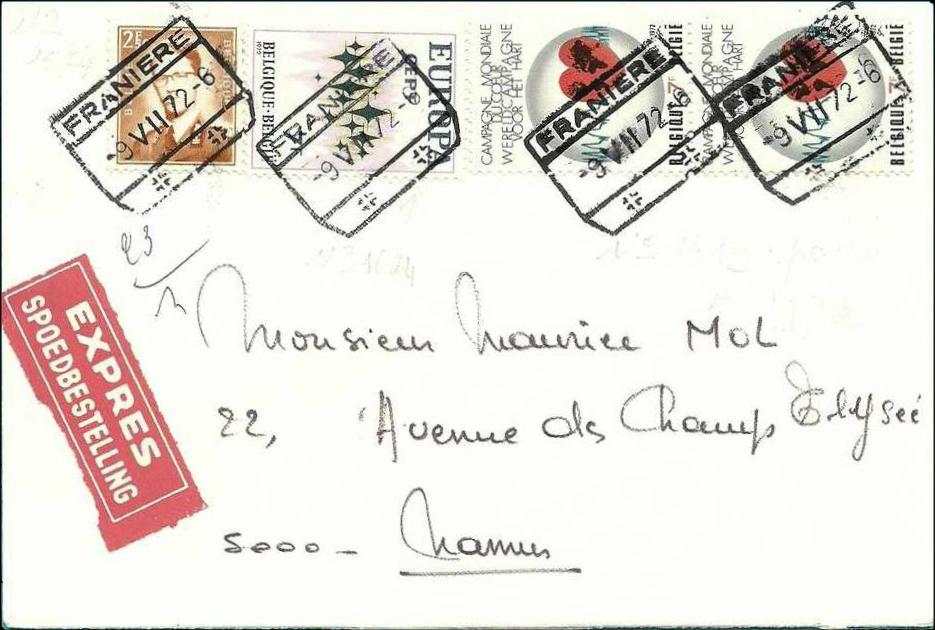 2F
BELGIQUE·BELGIË
EUROPA
CEPT
CAMPAGNE MONDIALE
DU COEUR
WERELDCAMPAGNE
VOOR HET HART
BELGIQUE 7F BELGIE
CAMPAGNE MONDIALE
DU COEUR
WERELDCAMPAGNE
VOOR HET HART
BELGIQUE 7F BELGIE
FRANIERE
-9 VII 72-6
FRANIERE
-9 VII 72-6
FRANIERE
-9 VII 72-6
FRANIERE
-9 VII 72-6
23
EXPRES
SPOEDBESTELLING
Monsieur Maurice MOL
22, Avenue des Champ Elysée
5000 - Namur